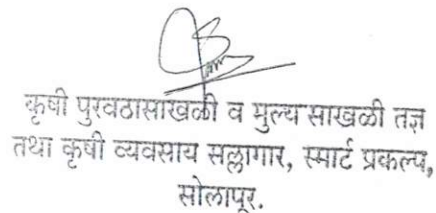 कृषी पुरवठासाखळी व मुल्य साखळी तज्ञ
तथा कृषी व्यवसाय सल्लागार, स्मार्ट प्रकल्प,
सोलापूर.